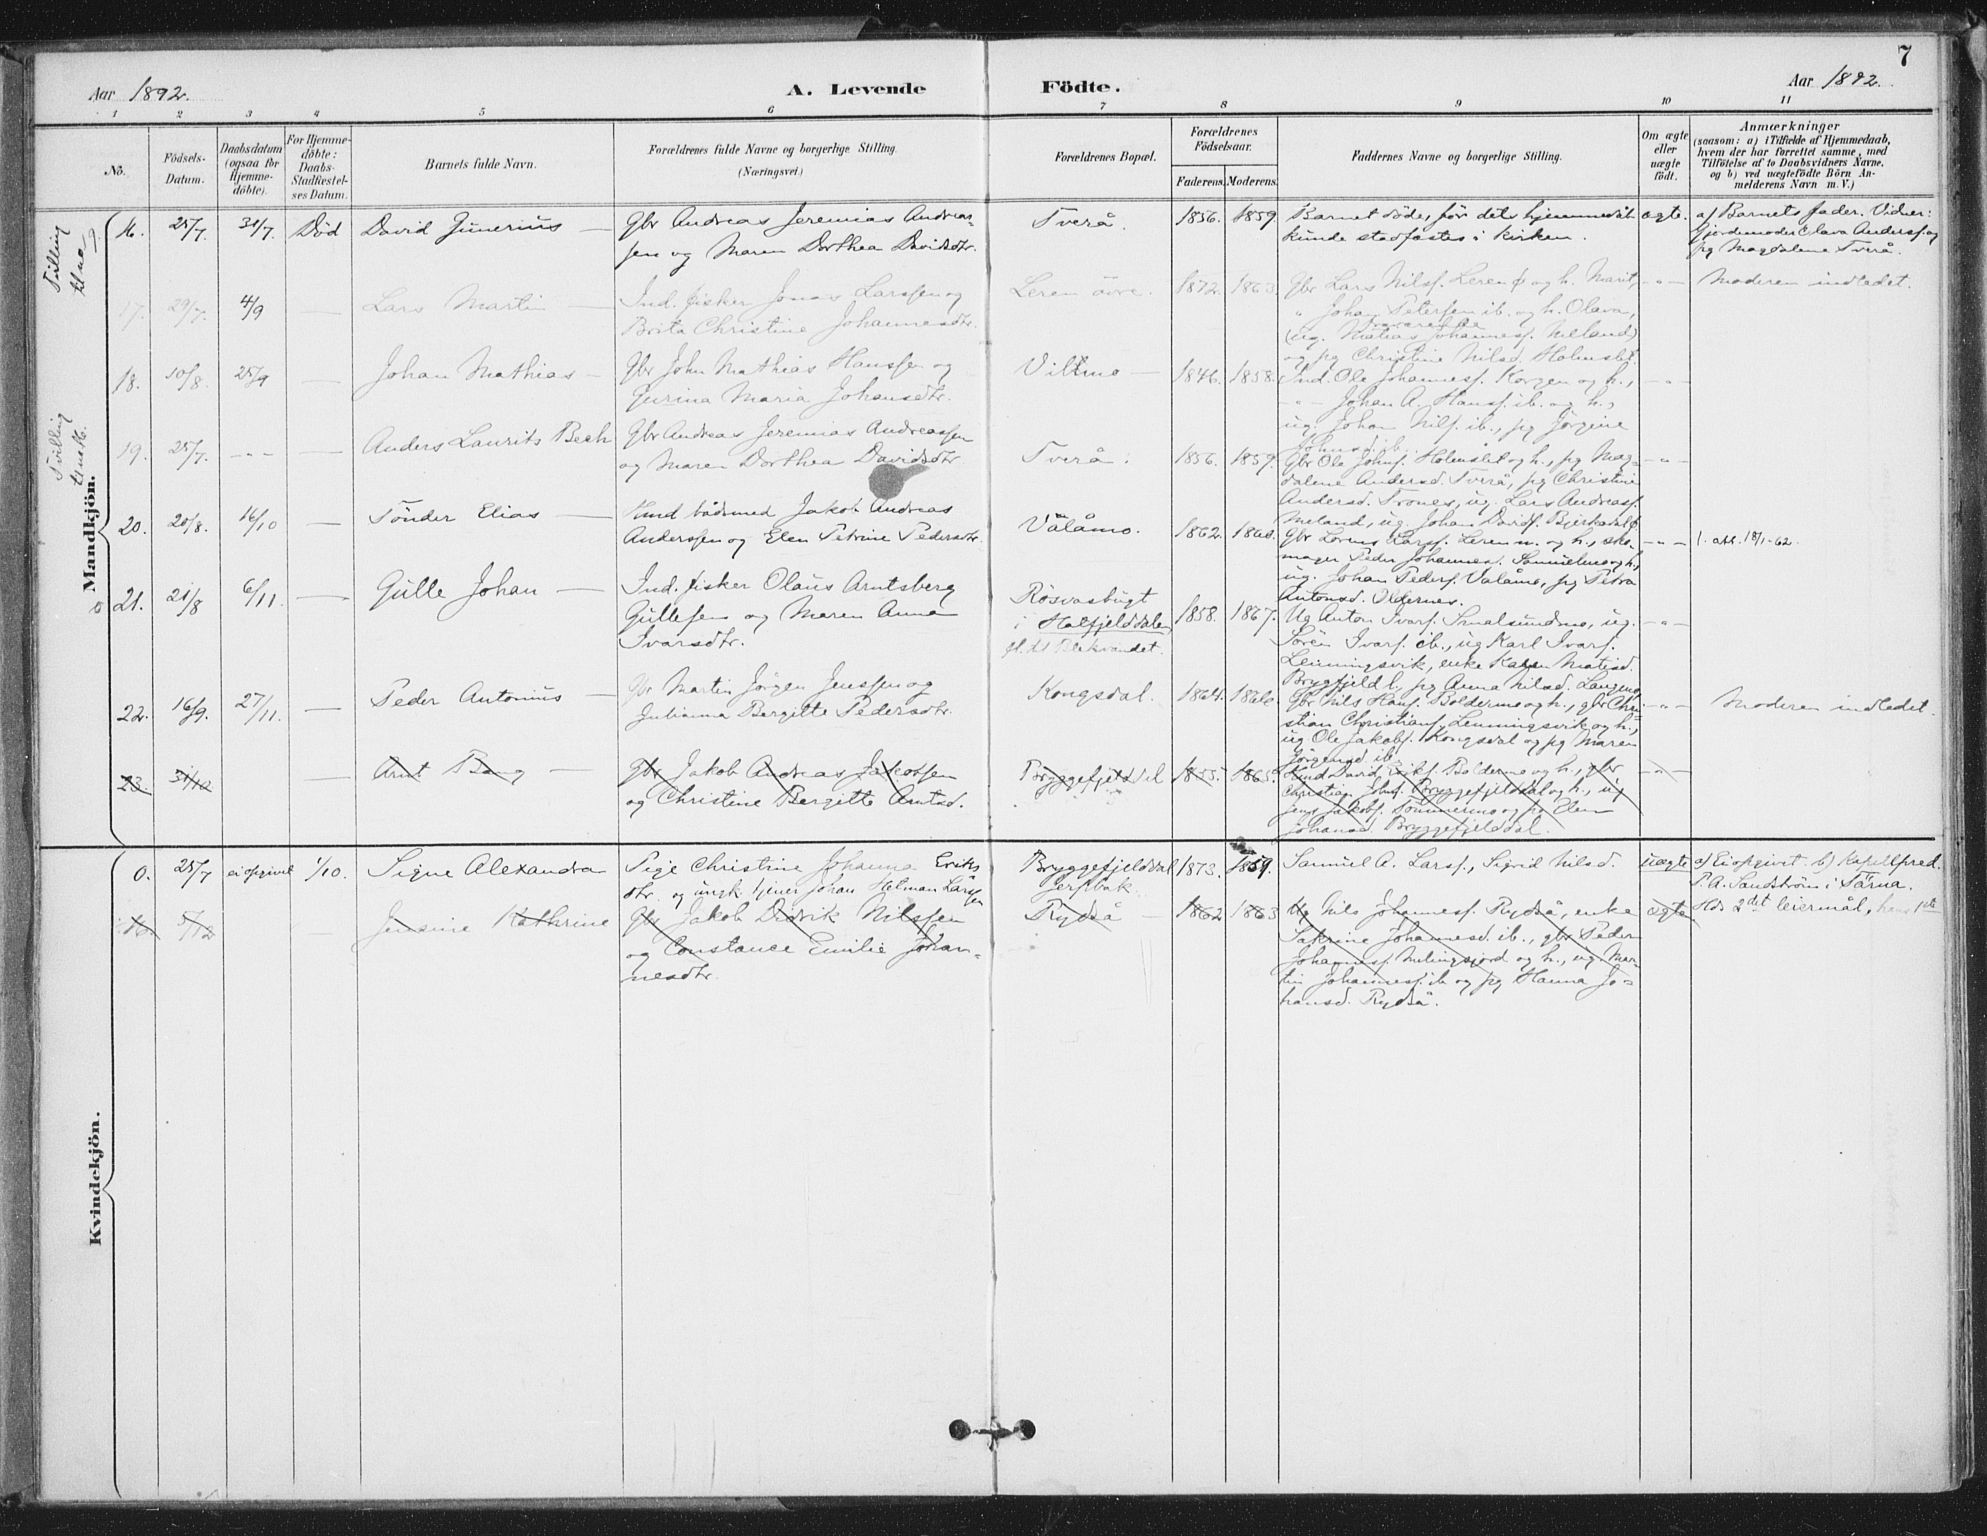 7
Aar 1892.
A. Levende Födte.
Aar 1892.
1 2 3 4 5 6 7 8 9 10 11
No.
Födsels-Datum.
Daabsdatum (ogsaa for Hjemme-döbte).
For Hjemme-döbte: Daabs-Stadfæstel-ses Datum.
Barnets fulde Navn.
Forældrenes fulde Navne og borgerlige Stilling (Næringsvei.)
Forældrenes Bopæl.
Forældrenes Födselsaar.
Faderens. Moderens.
Faddernes Navne og borgerlige Stilling.
Om ægte eller uægte födt.
Anmærkninger
(saasom: a) i Tilfælde af Hjemmedaab,
hvem der har forrettet samme, med
Tilföielse af to Daabsvidners Navne,
og b) ved uægtefödte Börn An-
melderens Navn m. V.)
Mandkjön.
Tvilling til no 19
16. 25/7. 31/7. Död David Junerius — Gbr Andreas Jeremias Andreas-
sen og Maren Dorthea Davidsdtr.
Tverå. 1856. 1859 Barnet döde, för dets hjemmedåb
kunde stadfæstes i kirken. ægte.
a) Barnets fader. Vidner:
Gjordemoder Olava Andersd. og
pg Magdalene Tverå.
17. 29/7. 4/9 — Lars Martin — Ind. fisker Jonas Larssen og
Brita Christine Johannesdtr.
Leren övre. 1872. 1863. Gbr Lars Nilss. Leren ö og h. Marit,
" Johan Petersen ib. og h. Olava,
ug. Matias Johanness. Meland
og pg Christine Nilsd. Holmslet.
—"— Moderen indledet.
18. 10/8. 25/9 — Johan Mathias — Gbr John Mathias Hanssen og
Gurina Maria Johansdtr.
Villmo — 1846. 1858. Ind. Ole Johanness. Korgen og h.,
—"— Johan A. Hanss. ib. og h.,
ug. Johan Nilss. ib., pg Jörgine
Johnsd. ib.
—"—
Tvilling til no 16.
19. 25/7. -"- — Anders Laurits Bech Gbr Andreas Jeremias Andreassen
og Maren Dorthea Davidsdtr
Tverå. 1856. 1859. Gbr Ole Johns. Holmslet og h., pg Mag-
dalene Andersd. Tverå, pg Christine
Andersd. Trones, ug. Lars Andreass.
Meland, ug. Johan Davids. Bjerkadal.
—"—
20. 20/8. 16/10 — Tönder Elias — Ind bådsmed Jakob Andreas
Anderssen og Elen Petrine Pedersdtr.
Vålåmo. 1862. 1860. Gbr Lorens Larss. Leren n. og h., sko-
mager Peder Johanness. og h.,
ug. Johan Peders. Valåmo, pg Petra
Antonsd. Oldernes.
—"— 1. att. 18/1-62.
21. 21/8 6/11. — Gulle Johan — Ind. fisker Olaus Arntsberg
Gullesen og Maren Anna
Ivarsdtr.
Rösvasbugt
i Hatfjelddalen
fl. til Blekvandet.
1858. 1867. Ug Anton Ivars. Smalsundmo, ug.
Sören Ivars. ib., ug Karl Ivars.
Lenningsvik, enke Karen Matisd.
Bryggfjeld l., pg Anna Nilsd. Langmo.
—"—
22. 16/9. 27/11. — Peder Antonius — Gbr Martin Jörgen Jenssen og
Julianna Bergitte Pedersdtr.
Kongsdal. 1864. 1866. Gbr Nils Hans. Boldermo og h., gbr Chri-
stian Christians. Lenningsvik og h.,
ug Ole Jakobs. Kongsdal og pg Maren
Jörgensd. ib.
—"— Moderen indledet.
23. 31/10 — Arnt Bang — Gbr Jakob Andreas Jakobsen
og Christine Bergitte Arntsd.
Bryggefjelddal 1855. 1865. Ind David Eriks. Boldermo og h., gbr
Christian Johns. Bryggefjelddal og h., ug
Jens Jakobs. Tömmermo og pg Elen
Johansd. Bryggefjelddal.
—"—
Kvindekjön.
0. 25/7 ei opgivet 1/10. Signe Alexandra Pige Christine Johanna Eriks
dtr. og ungk. tjener Johan Helman Larssen
Bryggefjelddal
1873. 1859. Samuel A. Larss., Sigrid Nilsd. uægte
a) Ei opgivet b) Kapellpred.
P. A. Sandström i Tärna.
Hds 2det leiermål, hans 1ste
16. 5/12 — Jensine Kathrine Gbr Jakob Didrik Nilssen
og Constance Emilie Johan-
nesdtr.
Rydså — 1862 1863 Ug Nils Johanness. Rydså, enke
Sakrine Johannesd. ib., gbr Peder
Johanness. og h., ug. Mar-
tin Johanness. ib og pg Hanna Jo-
hansd. Rydså.
ægte